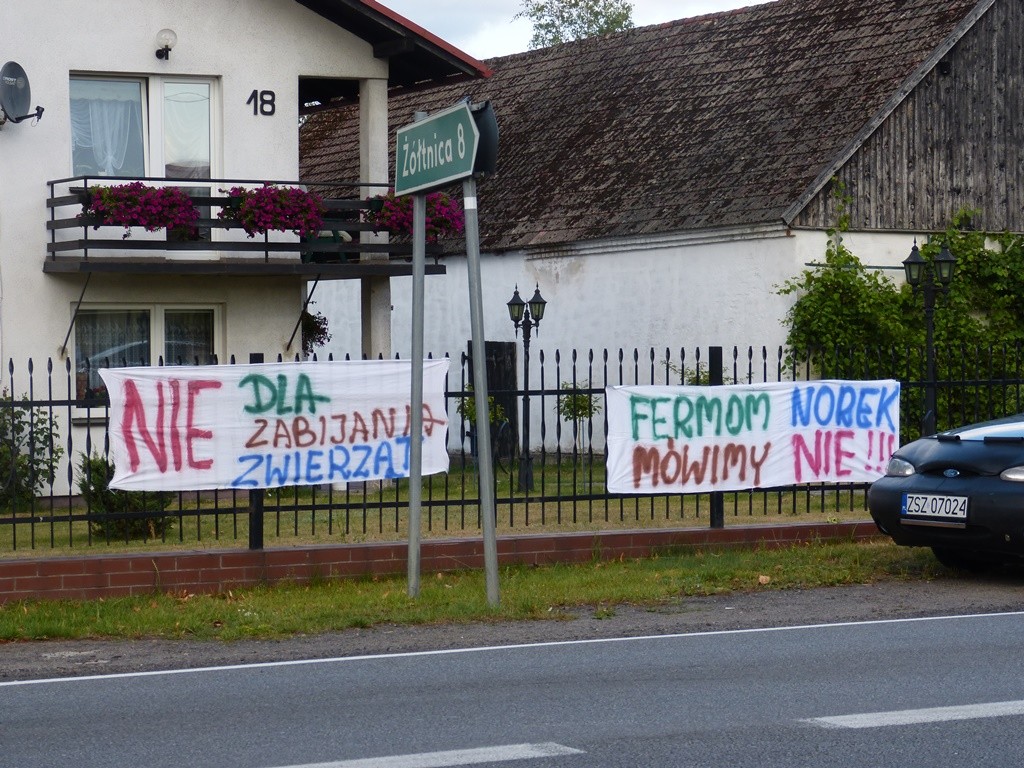 18
Żółtnica 8
NIE DLA
ZABIJANIA
ZWIERZĄT
FERMOM NOREK
MÓWIMY NIE!!!
ZSZ 07024